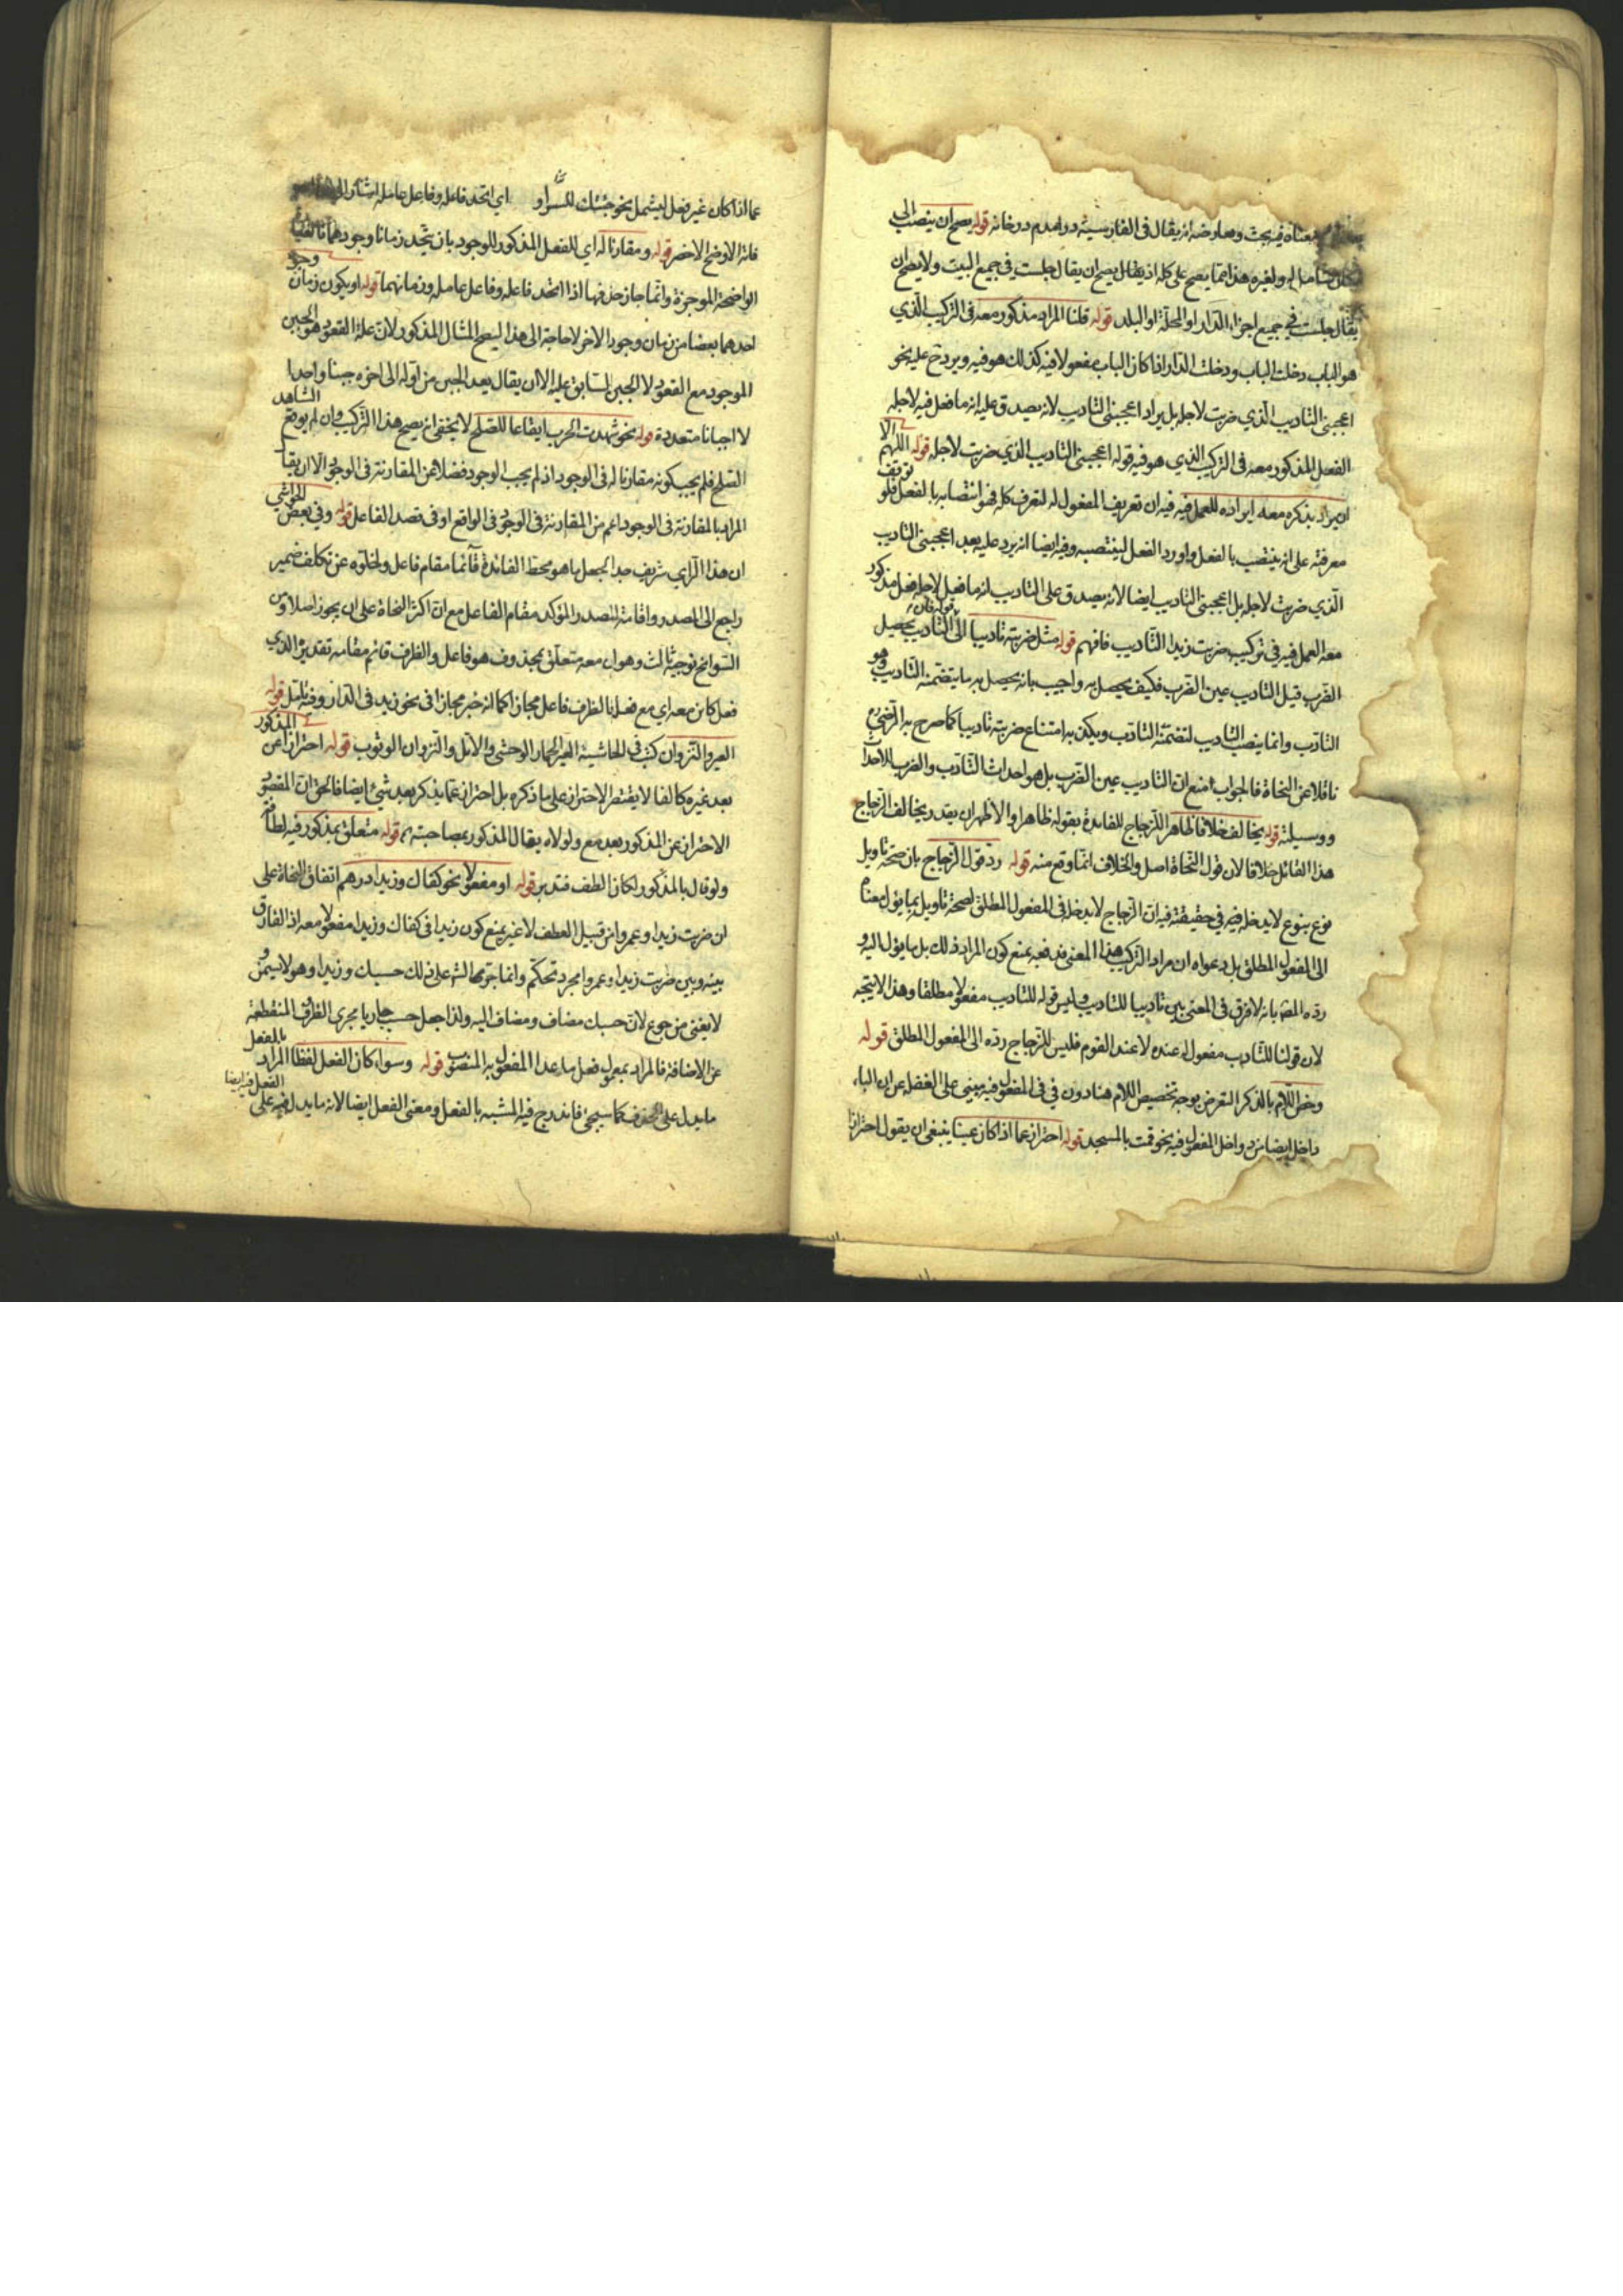 معناه فيه بحث ومعارضه انه يقال فى الفارسية در امدم در خانه قوله يصح ان ينصب الى
مكان شامل له ولغيره هذا انما يصح على كله اذ يقال يصح ان يقال جلست فى جميع البيت ولا يصح ان
يقال جلست فى جميع اجزاء الدار او المحلة او البلد قوله قلنا المراد مذكور معه فى التركيب الذي
هو الباب دخلت الباب ودخلت الدار اذا كان الباب مفعولا فيه كذلك هو فيه ويرد ح عليه نحو
اعجبنى التاديب الذي ضربت لاجله بل يراد اعجبنى التاديب لانه يصدق عليه انه ما فعل فيه لاجله
الفعل المذكور معه فى التركيب الذي هو فيه قوله اعجبنى التاديب الذي ضربت لاجله قوله اللهم الا
ان يراد بذكره معه ايراده للعمل فيه فيه ان تعريف المفعول له لتعرف كله فهو انتصابه بالفعل فلو توقف
معرفته على انه ينتصب بالفعل واورد الفعل لينتصبه وفيه ايضا انه يرد عليه بعد اعجبنى التاديب
الذي ضربت لاجله بل اعجبنى التاديب ايضا لانه يصدق على التاديب انه ما فعل لاجله فعل مذكور
معه العمل فيه في تركيب ضربت زيدا التاديب فافهم قوله مثل ضربته تاديبا قوله فان التاديب يحصل
القرب قيل التاديب عين الضرب فكيف يحصل به واجيب بانه يحصل به ما يتضمنه التاديب وهو
التادب وانما ينصب التاديب لتضمنه التادب ويكن به امتناع ضربته تاديبا كما صرح به الرضي
ناقلا عن النحاة فالجواب امنع ان التاديب عين الضرب بل هو احداث التادب والضرب للاحداث
ووسيلته قوله يخالف خلافا ظاهرا للزجاج للفائدة بقوله ظاهرا والاظهر ان يقدر يخالف الزجاج
هذا القائل خلافا لان قول النحاة اصل والخلاف انما وقع منه قوله رد قول الزجاج بان صحة تاويل
نوع بنوع لا يدخله فيه في حقيقته فيه ان الزجاج لا يدخله فى المفعول المطلق لصحة تاويل بما يؤل معناه
الى المفعول المطلق بل دعواه ان مراد التركيب هذا المعنى فدفعه بمنع كون المراد ذلك بل ما يؤل اليه و
رده المص بانه لا فرق فى المعنى بين تاديبا للتاديب وليس قوله للتاديب مفعولا مطلقا وهذا لا يتجه
لان قولنا للتاديب مفعول له عنده لا عند القوم فليس للزجاج رده الى المفعول المطلق قوله
وخص اللام بالذكر التعرض بوجه تخصيص اللام هنا دون في فى المفعول فيه مبنى على الغفل عن ان الباء
داخل ايضا من دواخل المفعول فيه نحو قمت بالمسجد قوله احتراز عما اذا كان عينا ينبغى ان يقول احترازا
عما اذا كان غير فعل ليشمل نحو جئتك للسمن او اي اتحد فاعله وفاعل عامله اشار
فانه الاوضح الاخصر قوله ومقارنا له اي للفعل المذكور للوجود بان يتحد زمانا وجودهما
الواضحة الموجزة وانما جاز حذفها اذا اتحد فاعله وفاعل عامله وزمانهما قوله او يكون زمان وجود
احدهما بعضا من زمان وجود الاخر لا حاجة الى هذا ليصح المثال المذكور لان علة القعود هو الجبن
الموجود مع القعود لا الجبن السابق عليه الا ان يقال يعد الجبن من اوله الى اخره جبنا واحدا
لا اجبانا متعددة قوله نحو شهدت الحرب ايقاعا للصلح لا يخفى انه يصح هذا التركيب وان لم يوقع الشاهد
الصلح فلم يجب كونه مقارنا له فى الوجود اذ لم يجب الوجود فضلا عن المقارنة فى الوجود الا ان يقال
المراد بالمقارنة فى الوجود اعم من المقارنة فى الوجود فى الواقع او فى قصد الفاعل قوله وفي بعض الحواشي
ان هذا الراي شريف جدا لجعل ما هو محط الفائدة قائما مقام فاعل ولخلوه عن تكلف ضمير
راجع الى المصدر واقامة المصدر المؤكد مقام الفاعل مع ان اكثر النحاة على ان يجوز اصلا ومن
السوانح توجيه ثالث وهو ان معه متعلق بمحذوف هو فاعل والظرف قائم مقامه تقديره الذي
فعل كائن معه اي مع فعلنا الظرف فاعل مجازا كما انه خبر مجازا فى نحو زيد فى الدار وفيه تامل قوله
العير والنزوان كتب فى الحاشية العير الحمار الوحشى والاتل والنزوان الوثوب قوله احترازا عن المذكور
بعد غيره كالفا لا يقتصر الاحتراز على ما ذكره بل احتراز عما يذكر بعد شيئ ايضا فالحق ان المقصود
الاحتراز عن المذكور بعد مع ولولاه يقال المذكور بمصاحبته ثم قوله متعلق بمذكور فيه لطافة
ولو قال بالمذكور لكان الطف فتدبر قوله او مفعولا نحو كفاك وزيدا درهم اتفاق النحاة على
ان ضربت زيدا وعمروا من قبيل العطف لا غير يمنع كون زيدا فى كفاك وزيدا مفعولا معه اذ الفارق
بينه وبين ضربت زيدا وعمروا مجرد تحكم وانما جرهما الش على ذلك حسبك وزيدا وهو لا يسمن و
لا يغنى من جوع لان حسبك مضاف ومضاف اليه ولذا جعل حسب جاريا مجرى الظرف المنقطعة
عن الاضافة فالمراد بمعمول فعل ما عدا المفعول به المنصوب قوله وسواء كان الفعل لفظا المراد بالفعل
ما يدل على الحدث كما سيجئ فاندرج فيه المشبه بالفعل ومعنى الفعل ايضا لانه ما يدل فيه على الفعل